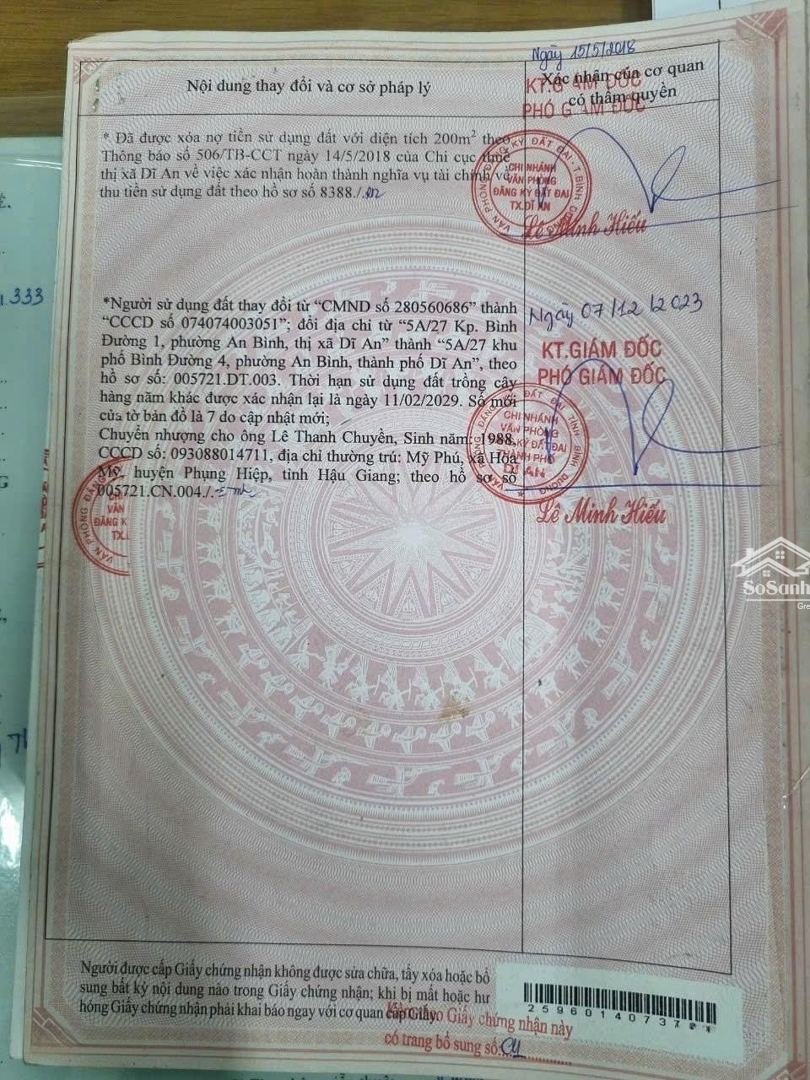 Ngày 15/5/2018
Nội dung thay đổi và cơ sở pháp lý
Xác nhận của cơ quan
có thẩm quyền
KT.GIÁM ĐỐC
PHÓ GIÁM ĐỐC
* Đã được xóa nợ tiền sử dụng đất với diện tích 200m² theo
Thông báo số 506/TB-CCT ngày 14/5/2018 của Chi cục thuế
thị xã Dĩ An về việc xác nhận hoàn thành nghĩa vụ tài chính về
thu tiền sử dụng đất theo hồ sơ số 8388./.
VĂN PHÒNG ĐĂNG KÝ ĐẤT ĐAI - T.BÌNH DƯƠNG
CHI NHÁNH
VĂN PHÒNG
ĐĂNG KÝ ĐẤT ĐAI
TX.DĨ AN
Lê Minh Hiếu
333
*Người sử dụng đất thay đổi từ “CMND số 280560686” thành
“CCCD số 074074003051”; đổi địa chỉ từ “5A/27 Kp. Bình
Đường 1, phường An Bình, thị xã Dĩ An” thành “5A/27 khu
phố Bình Đường 4, phường An Bình, thành phố Dĩ An”, theo
hồ sơ số: 005721.DT.003. Thời hạn sử dụng đất trồng cây
hàng năm khác được xác nhận lại là ngày 11/02/2029. Số mới
của tờ bản đồ là 7 do cập nhật mới;
Chuyển nhượng cho ông Lê Thanh Chuyền, Sinh năm: 1988,
CCCD số: 093088014711, địa chỉ thường trú: Mỹ Phú, xã Hòa
Mỹ, huyện Phụng Hiệp, tỉnh Hậu Giang; theo hồ sơ số
005721.CN.004./.
Ngày 07/12/2023
KT.GIÁM ĐỐC
PHÓ GIÁM ĐỐC
VĂN PHÒNG ĐĂNG KÝ ĐẤT ĐAI TỈNH BÌNH DƯƠNG
CHI NHÁNH
VĂN PHÒNG
ĐĂNG KÝ ĐẤT ĐAI
THÀNH PHỐ
DĨ AN
Lê Minh Hiếu
VĂN PHÒNG ĐĂNG
CHI
VĂN
ĐĂNG K
TX.
SoSanh
Gre
Người được cấp Giấy chứng nhận không được sửa chữa, tẩy xóa hoặc bổ
sung bất kỳ nội dung nào trong Giấy chứng nhận; khi bị mất hoặc hư
hỏng Giấy chứng nhận phải khai báo ngay với cơ quan cấp Giấy.
theo Giấy chứng nhận này
có trang bổ sung số: